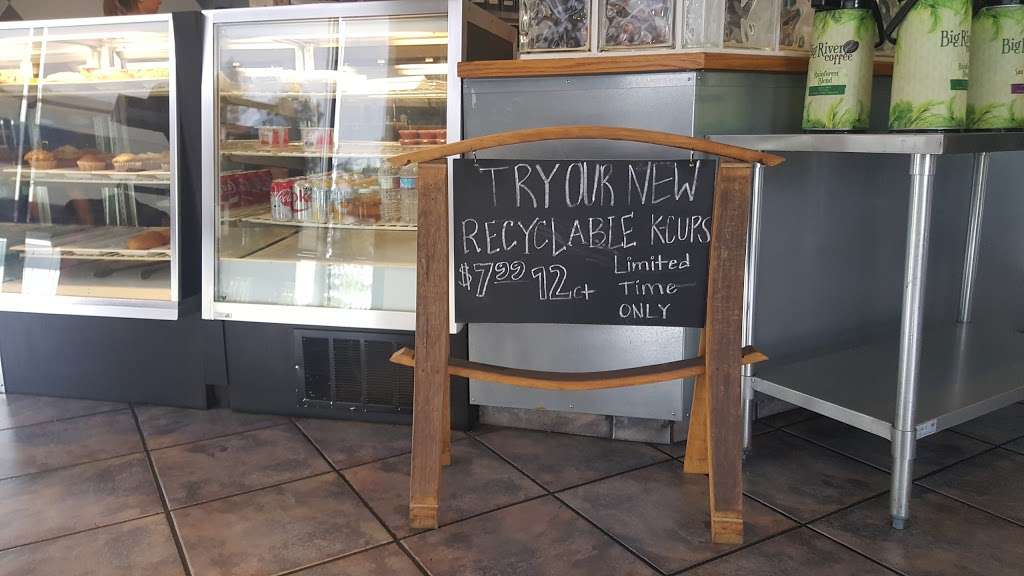 TRY OUR NEW
RECYCLABLE KCUPS
$7.99 12ct
Limited
Time
ONLY
Big River
coffee
Rainforest
Blend
Coke